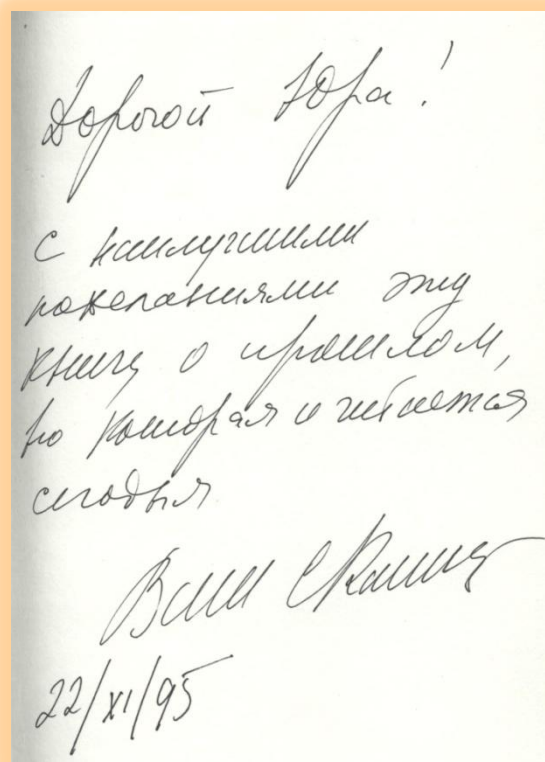 Дорогой Юра!
с наилучшими
пожеланиями эту
книгу о прошлом,
но которая и читается
сегодня
Ваш
22/XI/95